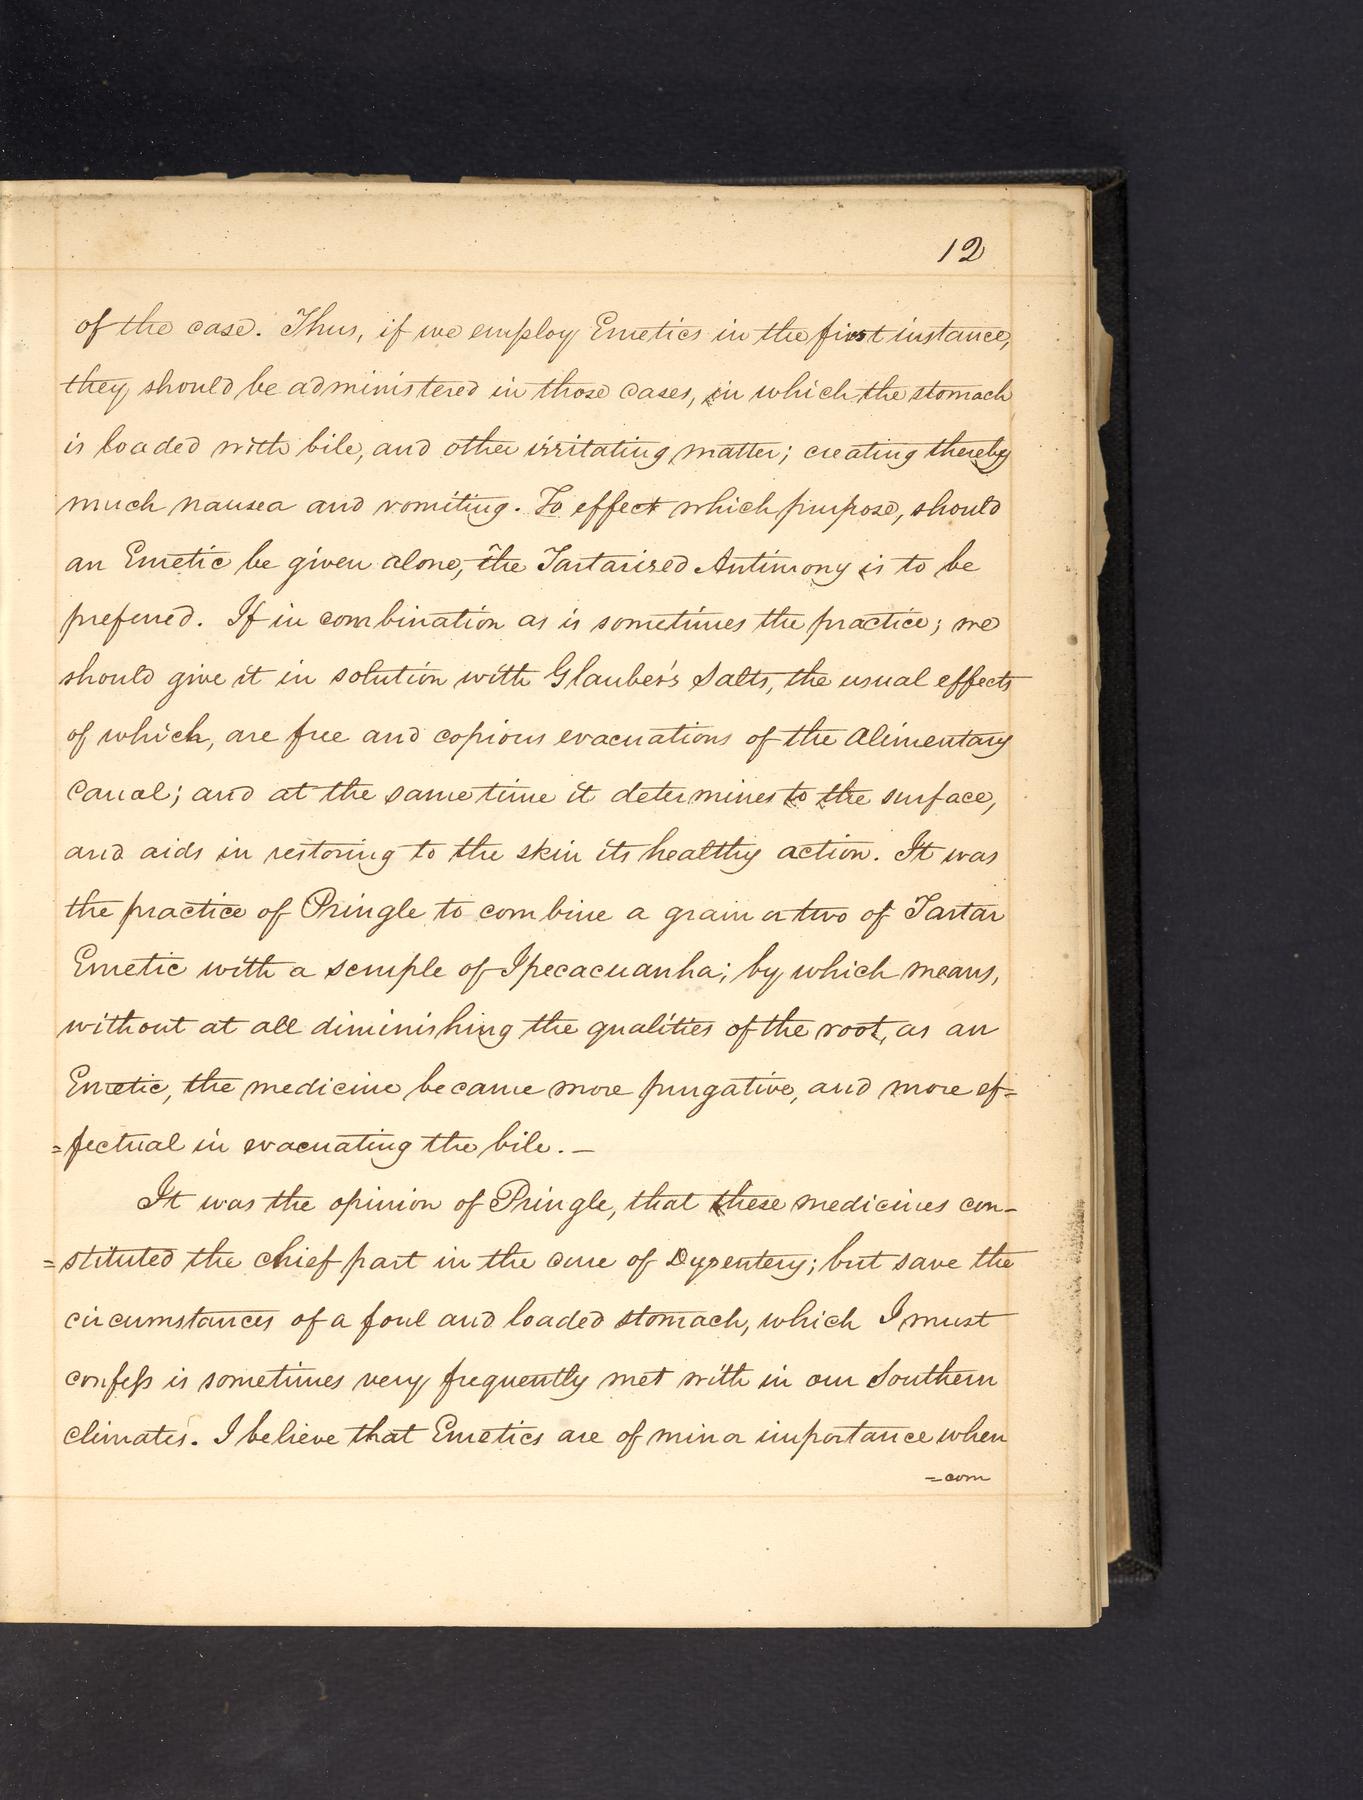 12
of the case. Thus, if we employ Emetics in the first instance,
they should be administered in those cases, in which the stomach
is loaded with bile, and other irritating matter; creating thereby
much nausea and vomiting. To effect which purpose, should
an Emetic be given alone, the Tartarised Antimony is to be
preferred. If in combination as is sometimes the practice; we
should give it in solution with Glauber's Salts, the usual effects
of which, are free and copious evacuations of the Alimentary
Canal; and at the same time it determines to the surface,
and aids in restoring to the skin its healthy action. It was
the practice of Pringle to combine a grain or two of Tartar
Emetic with a scruple of Ipecacuanha; by which means,
without at all diminishing the qualities of the root, as an
Emetic, the medicine became more purgative, and more ef=
=fectual in evacuating the bile. —
It was the opinion of Pringle, that these medicines con-
=stituted the chief part in the cure of Dysentery; but save the
circumstances of a foul and loaded stomach, which I must
confeſs is sometimes very frequently met with in our Southern
climates. I believe that Emetics are of minor importance when
=com